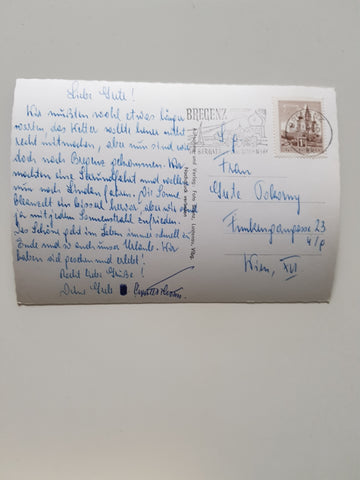 Liebe Grete!
Wir mußten wohl etwas länger
warten, das Wetter wollte heuer nicht
recht mitmachen, aber nun sind wir
doch nach Bregenz gekommen. Wir
machten eine Fahrt und wollen
nun nach Lindau fahren. Die Sonne
blinzelt ein bissel hervor aber wir sind
ja mit jedem Sonnenstrahl zufrieden.
Das Schöne geht im Leben immer schnell zu
Ende und so auch unser Urlaub. Wir
haben viel gesehen und erlebt!
Recht liebe Grüße!
Deine Grete
BREGENZ
Frau
Grete Pokorny
Funkengerngasse 23
4/9
Wien, XVI